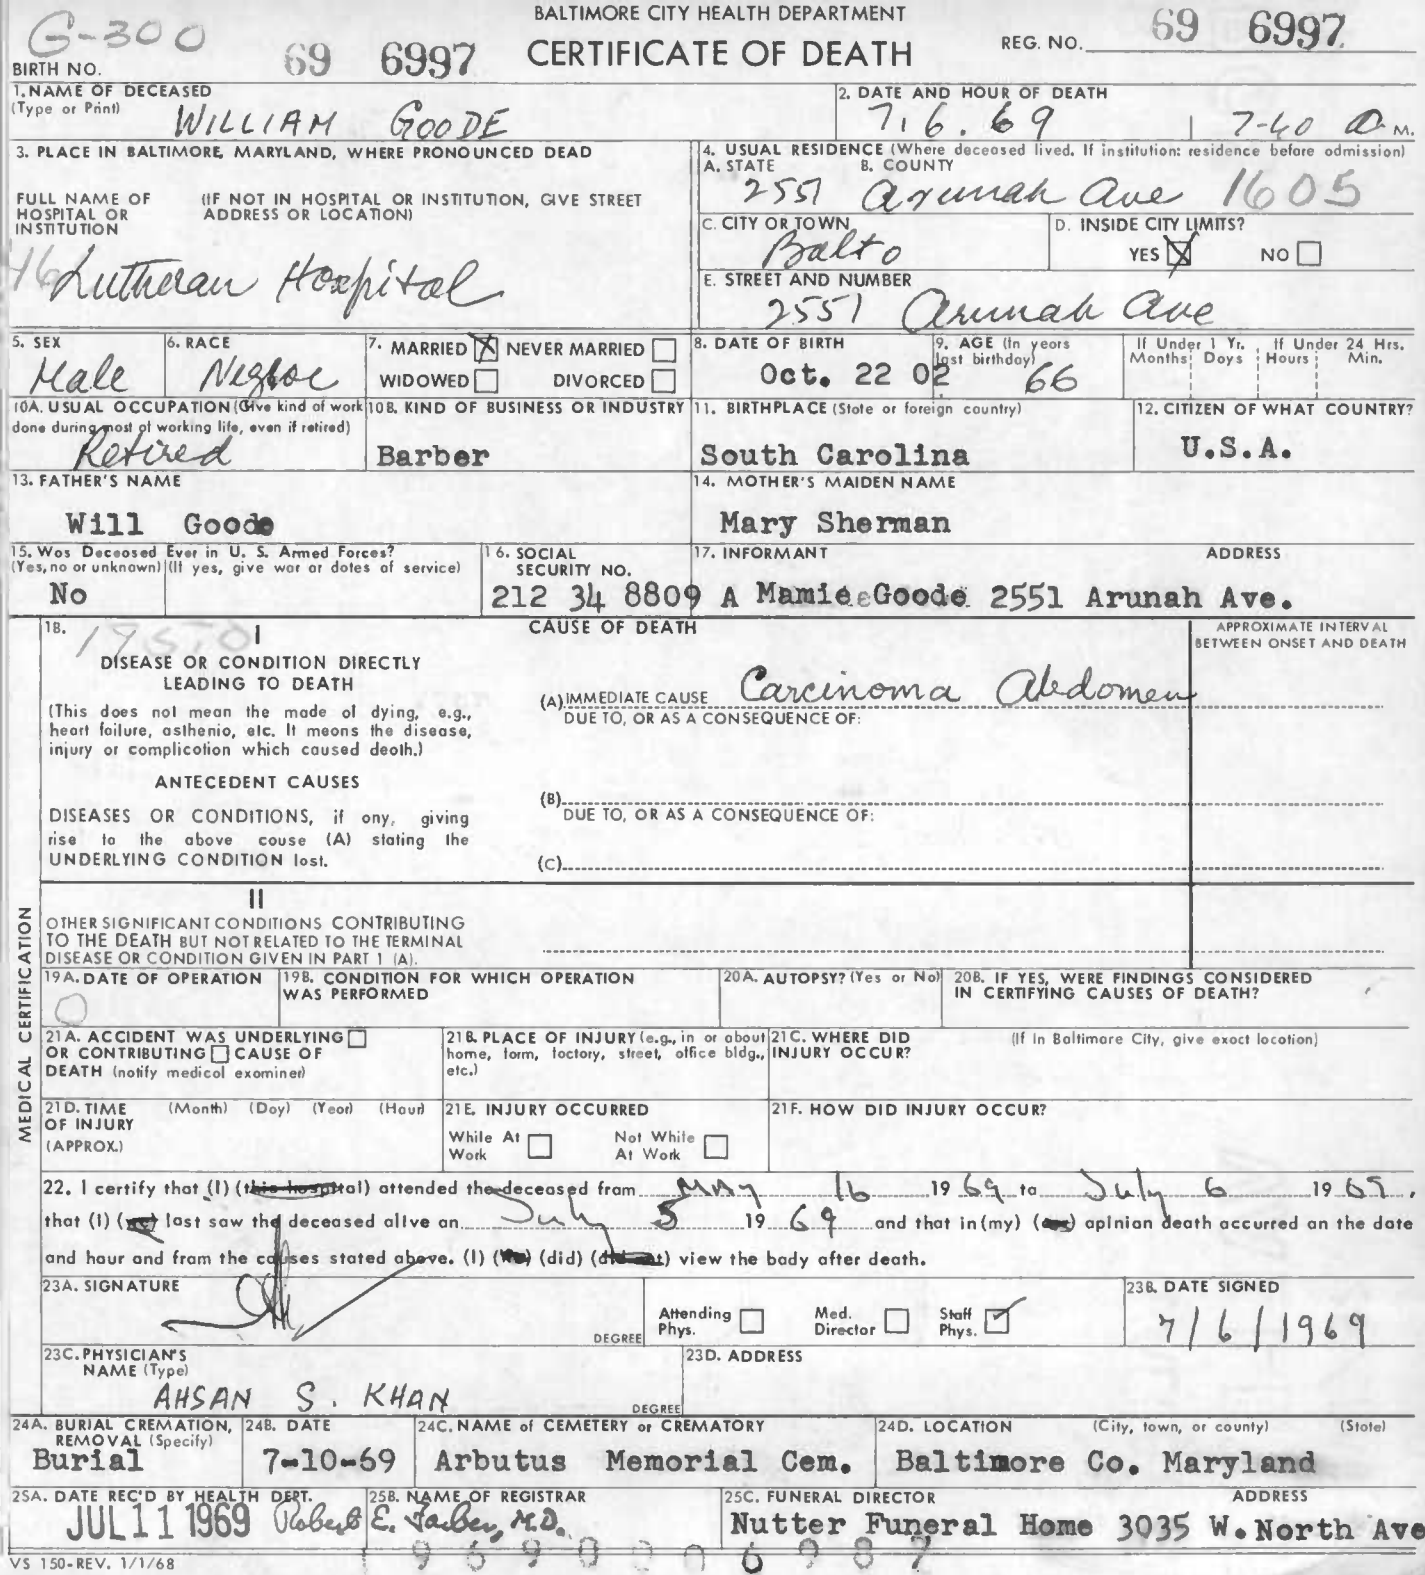 BALTIMORE CITY HEALTH DEPARTMENT
G-300 69 6997 CERTIFICATE OF DEATH REG. NO. 69 6997
BIRTH NO.
1. NAME OF DECEASED
(Type or Print)
WILLIAM GOODE
2. DATE AND HOUR OF DEATH
7.6.69 7-40 a M.
3. PLACE IN BALTIMORE, MARYLAND, WHERE PRONOUNCED DEAD
FULL NAME OF HOSPITAL OR INSTITUTION
(IF NOT IN HOSPITAL OR INSTITUTION, GIVE STREET ADDRESS OR LOCATION)
46 Lutheran Hospital
4. USUAL RESIDENCE (Where deceased lived. If institution: residence before admission)
A. STATE B. COUNTY
2551 Arunah Ave 1605
C. CITY OR TOWN
Balto
D. INSIDE CITY LIMITS?
YES NO
E. STREET AND NUMBER
2551 Arunah Ave
5. SEX
Male
6. RACE
Negroe
7. MARRIED NEVER MARRIED
WIDOWED DIVORCED
8. DATE OF BIRTH
Oct. 22 02
9. AGE (In years last birthday)
66
If Under 1 Yr. If Under 24 Hrs.
Months Days Hours Min.
10A. USUAL OCCUPATION (Give kind of work done during most of working life, even if retired)
Retired
10B. KIND OF BUSINESS OR INDUSTRY
Barber
11. BIRTHPLACE (State or foreign country)
South Carolina
12. CITIZEN OF WHAT COUNTRY?
U.S.A.
13. FATHER'S NAME
Will Goode
14. MOTHER'S MAIDEN NAME
Mary Sherman
15. Was Deceased Ever in U. S. Armed Forces?
(Yes, no or unknown) (If yes, give war or dates of service)
No
16. SOCIAL SECURITY NO.
212 34 8809 A
17. INFORMANT ADDRESS
Mamie Goode 2551 Arunah Ave.
MEDICAL CERTIFICATION
18.
I
DISEASE OR CONDITION DIRECTLY
LEADING TO DEATH
(This does not mean the mode of dying, e.g.,
heart failure, asthenia, etc. It means the disease,
injury or complication which caused death.)
ANTECEDENT CAUSES
DISEASES OR CONDITIONS, if any, giving
rise to the above cause (A) stating the
UNDERLYING CONDITION last.
CAUSE OF DEATH
APPROXIMATE INTERVAL
BETWEEN ONSET AND DEATH
(A) IMMEDIATE CAUSE Carcinoma Abdomen
DUE TO, OR AS A CONSEQUENCE OF:
(B)
DUE TO, OR AS A CONSEQUENCE OF:
(C)
II
OTHER SIGNIFICANT CONDITIONS CONTRIBUTING
TO THE DEATH BUT NOT RELATED TO THE TERMINAL
DISEASE OR CONDITION GIVEN IN PART 1 (A).
19A. DATE OF OPERATION
0
19B. CONDITION FOR WHICH OPERATION
WAS PERFORMED
20A. AUTOPSY? (Yes or No)
20B. IF YES, WERE FINDINGS CONSIDERED
IN CERTIFYING CAUSES OF DEATH?
21A. ACCIDENT WAS UNDERLYING
OR CONTRIBUTING CAUSE OF
DEATH (notify medical examiner)
21B. PLACE OF INJURY (e.g., in or about
home, farm, factory, street, office bldg.,
etc.)
21C. WHERE DID
INJURY OCCUR?
(If in Baltimore City, give exact location)
21D. TIME (Month) (Day) (Year) (Hour)
OF INJURY
(APPROX.)
21E. INJURY OCCURRED
While At Work Not While At Work
21F. HOW DID INJURY OCCUR?
22. I certify that (I) (this hospital) attended the deceased from May 16 1969 to July 6 1969,
that (I) (we) last saw the deceased alive on July 5 1969 and that in (my) (our) opinion death occurred on the date
and hour and from the causes stated above. (I) (We) (did) (did not) view the body after death.
23A. SIGNATURE
DEGREE
Attending Phys. Med. Director Staff Phys.
23B. DATE SIGNED
7/6/1969
23C. PHYSICIAN'S
NAME (Type)
AHSAN S. KHAN
DEGREE
23D. ADDRESS
24A. BURIAL CREMATION,
REMOVAL (Specify)
Burial
24B. DATE
7-10-69
24C. NAME of CEMETERY or CREMATORY
Arbutus Memorial Cem.
24D. LOCATION (City, town, or county) (State)
Baltimore Co. Maryland
25A. DATE REC'D BY HEALTH DEPT.
JUL 11 1969
25B. NAME OF REGISTRAR
Robert E. Farber, M.D.
25C. FUNERAL DIRECTOR ADDRESS
Nutter Funeral Home 3035 W. North Ave
VS 150-REV. 1/1/68